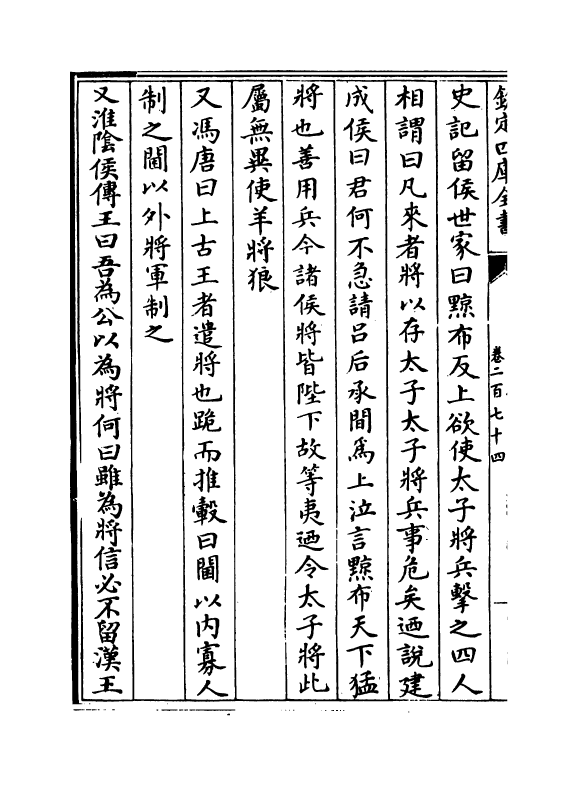 欽定四庫全書
卷二百七十四
史記留侯世家曰黥布反上欲使太子將兵擊之四人
相謂曰凡來者將以存太子太子將兵事危矣迺說建
成侯曰君何不急請呂后承間為上泣言黥布天下猛
將也善用兵今諸侯將皆陛下故等夷迺令太子將此
屬無異使羊將狼
又馮唐曰上古王者遣將也跪而推轂曰閫以内寡人
制之閫以外將軍制之
又淮陰侯傳王曰吾為公以為將何曰雖為將信必不留漢王